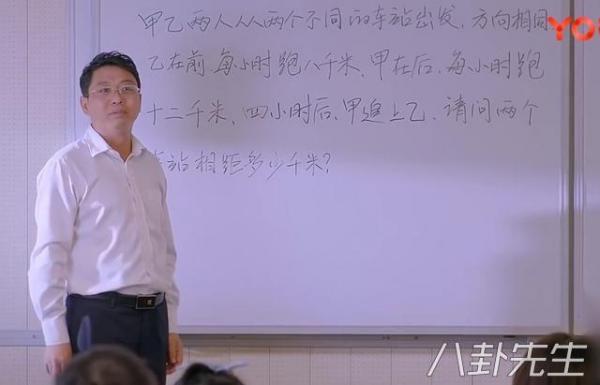 甲乙两人从两个不同的车站出发,方向相同
乙在前,每小时跑八千米,甲在后,每小时跑
十二千米,四小时后,甲追上乙,请问两个
站相距多少千米?
YO
八卦先生